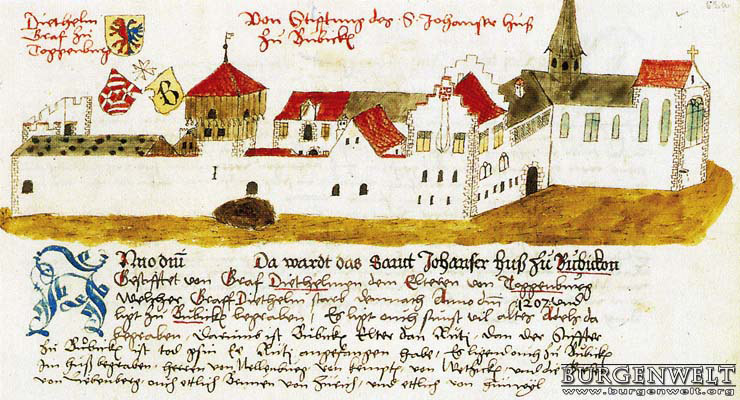 Diethelm
Graf zu
Toggenburg
Von Stifftung des S. Johanser Huß
Zu Bubickh
B
Anno dni Da wardt das Sanct Johanser Huß zu Bubickon
Gestifftet von Graf Diethelmen dem Elteren von Toggenburg
Welcher Graff Diethelm starb demnach Anno dni 1207 und
ligt zu Bubickh begraben / Es ligt ouch sunst vil altes Adels da
begraben / ist Bubickh Elter dan Rüti, dan der Stiffter
Zu Bubickh ist tod gsin Ee Rüti angefangen habe / Es ligend ouch zu Bubickh
Im Huß begraben herren von Nellenburg von kempten von und die
von Liebenberg ouch etlich von Zürich / und etlich von hinwyl
BURGENWELT
www.burgenwelt.org